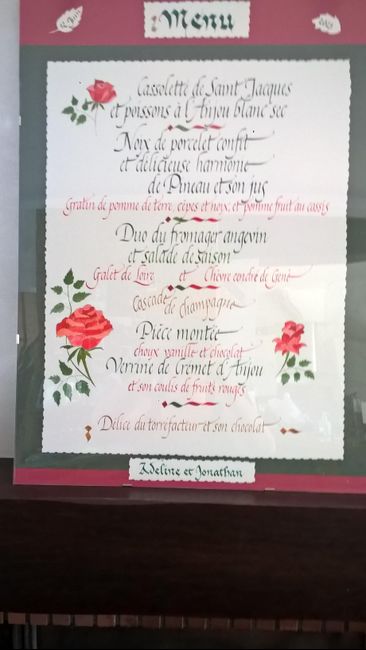 Menu
Cassolette de Saint Jacques
et poissons à l'Anjou blanc sec
Noix de porcelet confit
et délicieuse harmonie
de Pineau et son jus
Gratin de pomme de terre, cèpes et noix, et pomme fruit au cassis
Duo du fromager angevin
et salade de saison
Galet de Loire et Chèvre cendré de Gené
Cascade de champagne
Pièce montée
choux vanille et chocolat
Verrine de Crémet d'Anjou
et son coulis de fruits rouges
Délice du torréfacteur et son chocolat
Adeline et Jonathan